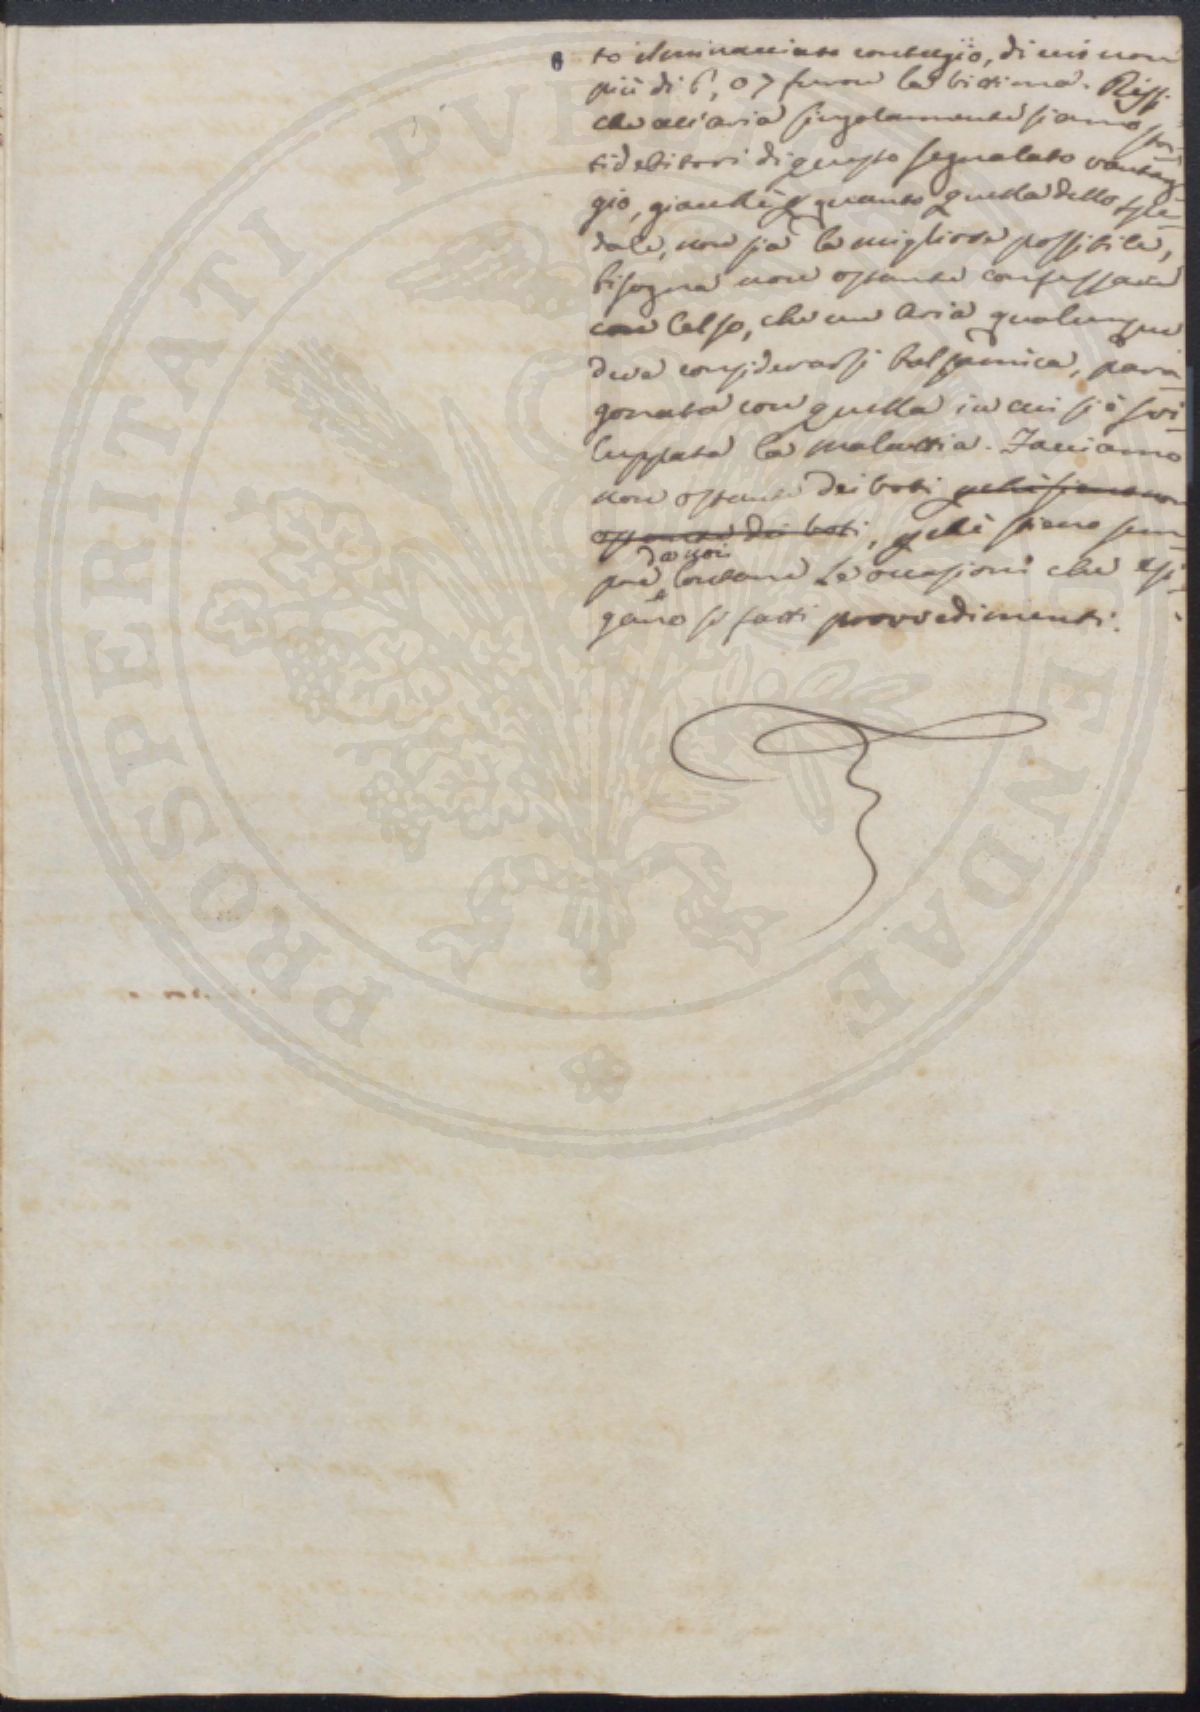 to il minacciato contagio, di cui non
più di 6, o 7 furon le vittime. Riff.
che all'aria singolarmente siamo
ti debitori di questo segnalato vantag
gio, giacchè quanto quella dello Spe
dale, non sia la migliore possibile,
bisogna non ostante confessare
con Celso, che un Aria qualunque
deve considerarsi balsamica, para
gonata con quella in cui si è svi
luppata la malattia. Facciamo
non ostante dei voti
ostante dei voti, sieno sem
da noi
pre lontane le occasioni che esi
gano sì fatti provvedimenti.
PROSPERITATI PVBLICAE AVGENDAE